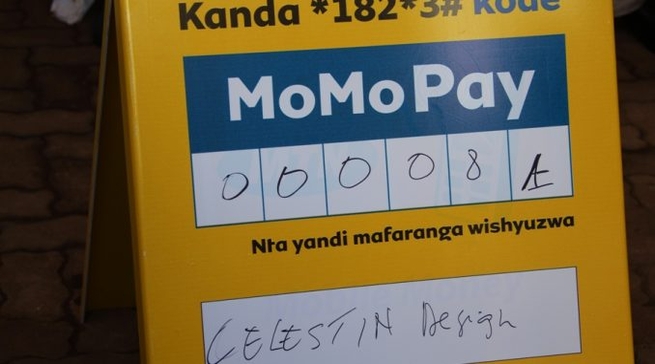 Kanda *182*3# kode
MoMoPay
000081
Nta yandi mafaranga wishyuzwa
CELESTIN Design